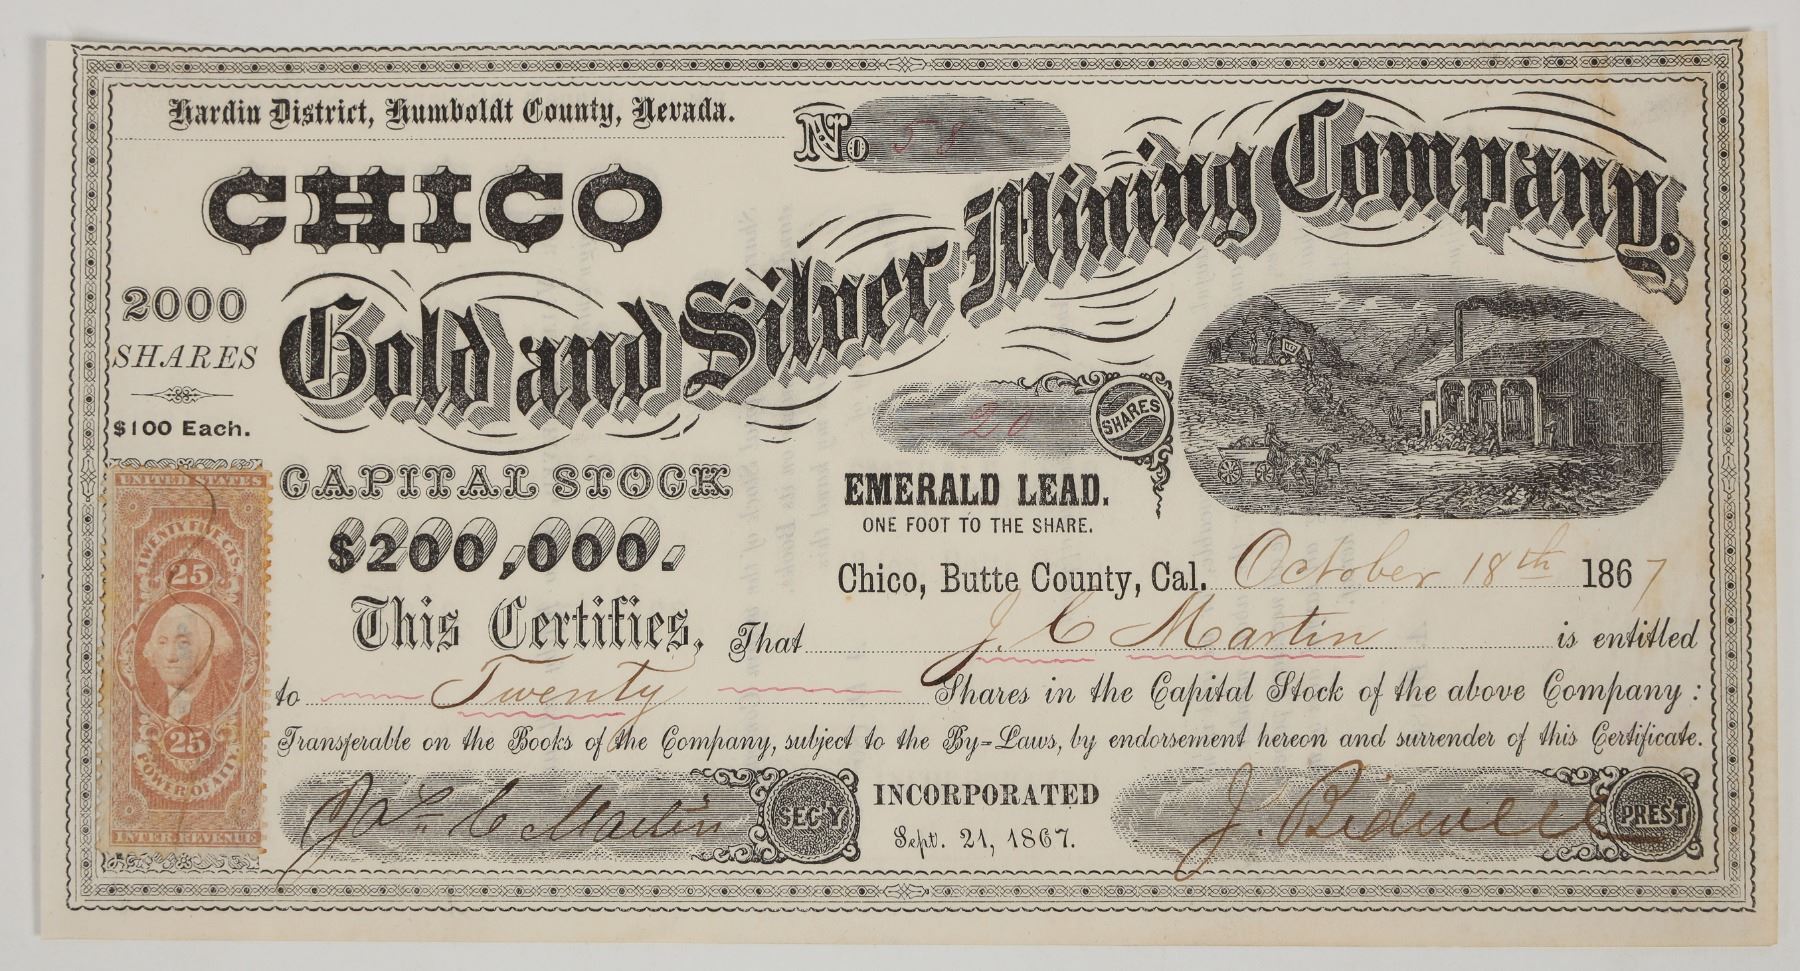 Hardin District, Humboldt County, Nevada.
No. 58
CHICO
Gold and Silver Mining Company.
2000
SHARES
$100 Each.
20 SHARES
CAPITAL STOCK
$200,000.
EMERALD LEAD.
ONE FOOT TO THE SHARE.
Chico, Butte County, Cal. October 18th 1867
This Certifies, That J. C. Martin is entitled
to Twenty Shares in the Capital Stock of the above Company:
Transferable on the Books of the Company, subject to the By=Laws, by endorsement hereon and surrender of this Certificate.
Jas. C. Martin SEC'Y
INCORPORATED
Sept. 21, 1867.
J. Bidwell PRES'T
UNITED STATES
TWENTY FIVE CTS.
25
25
POWER OF ATT'Y
INTER. REVENUE